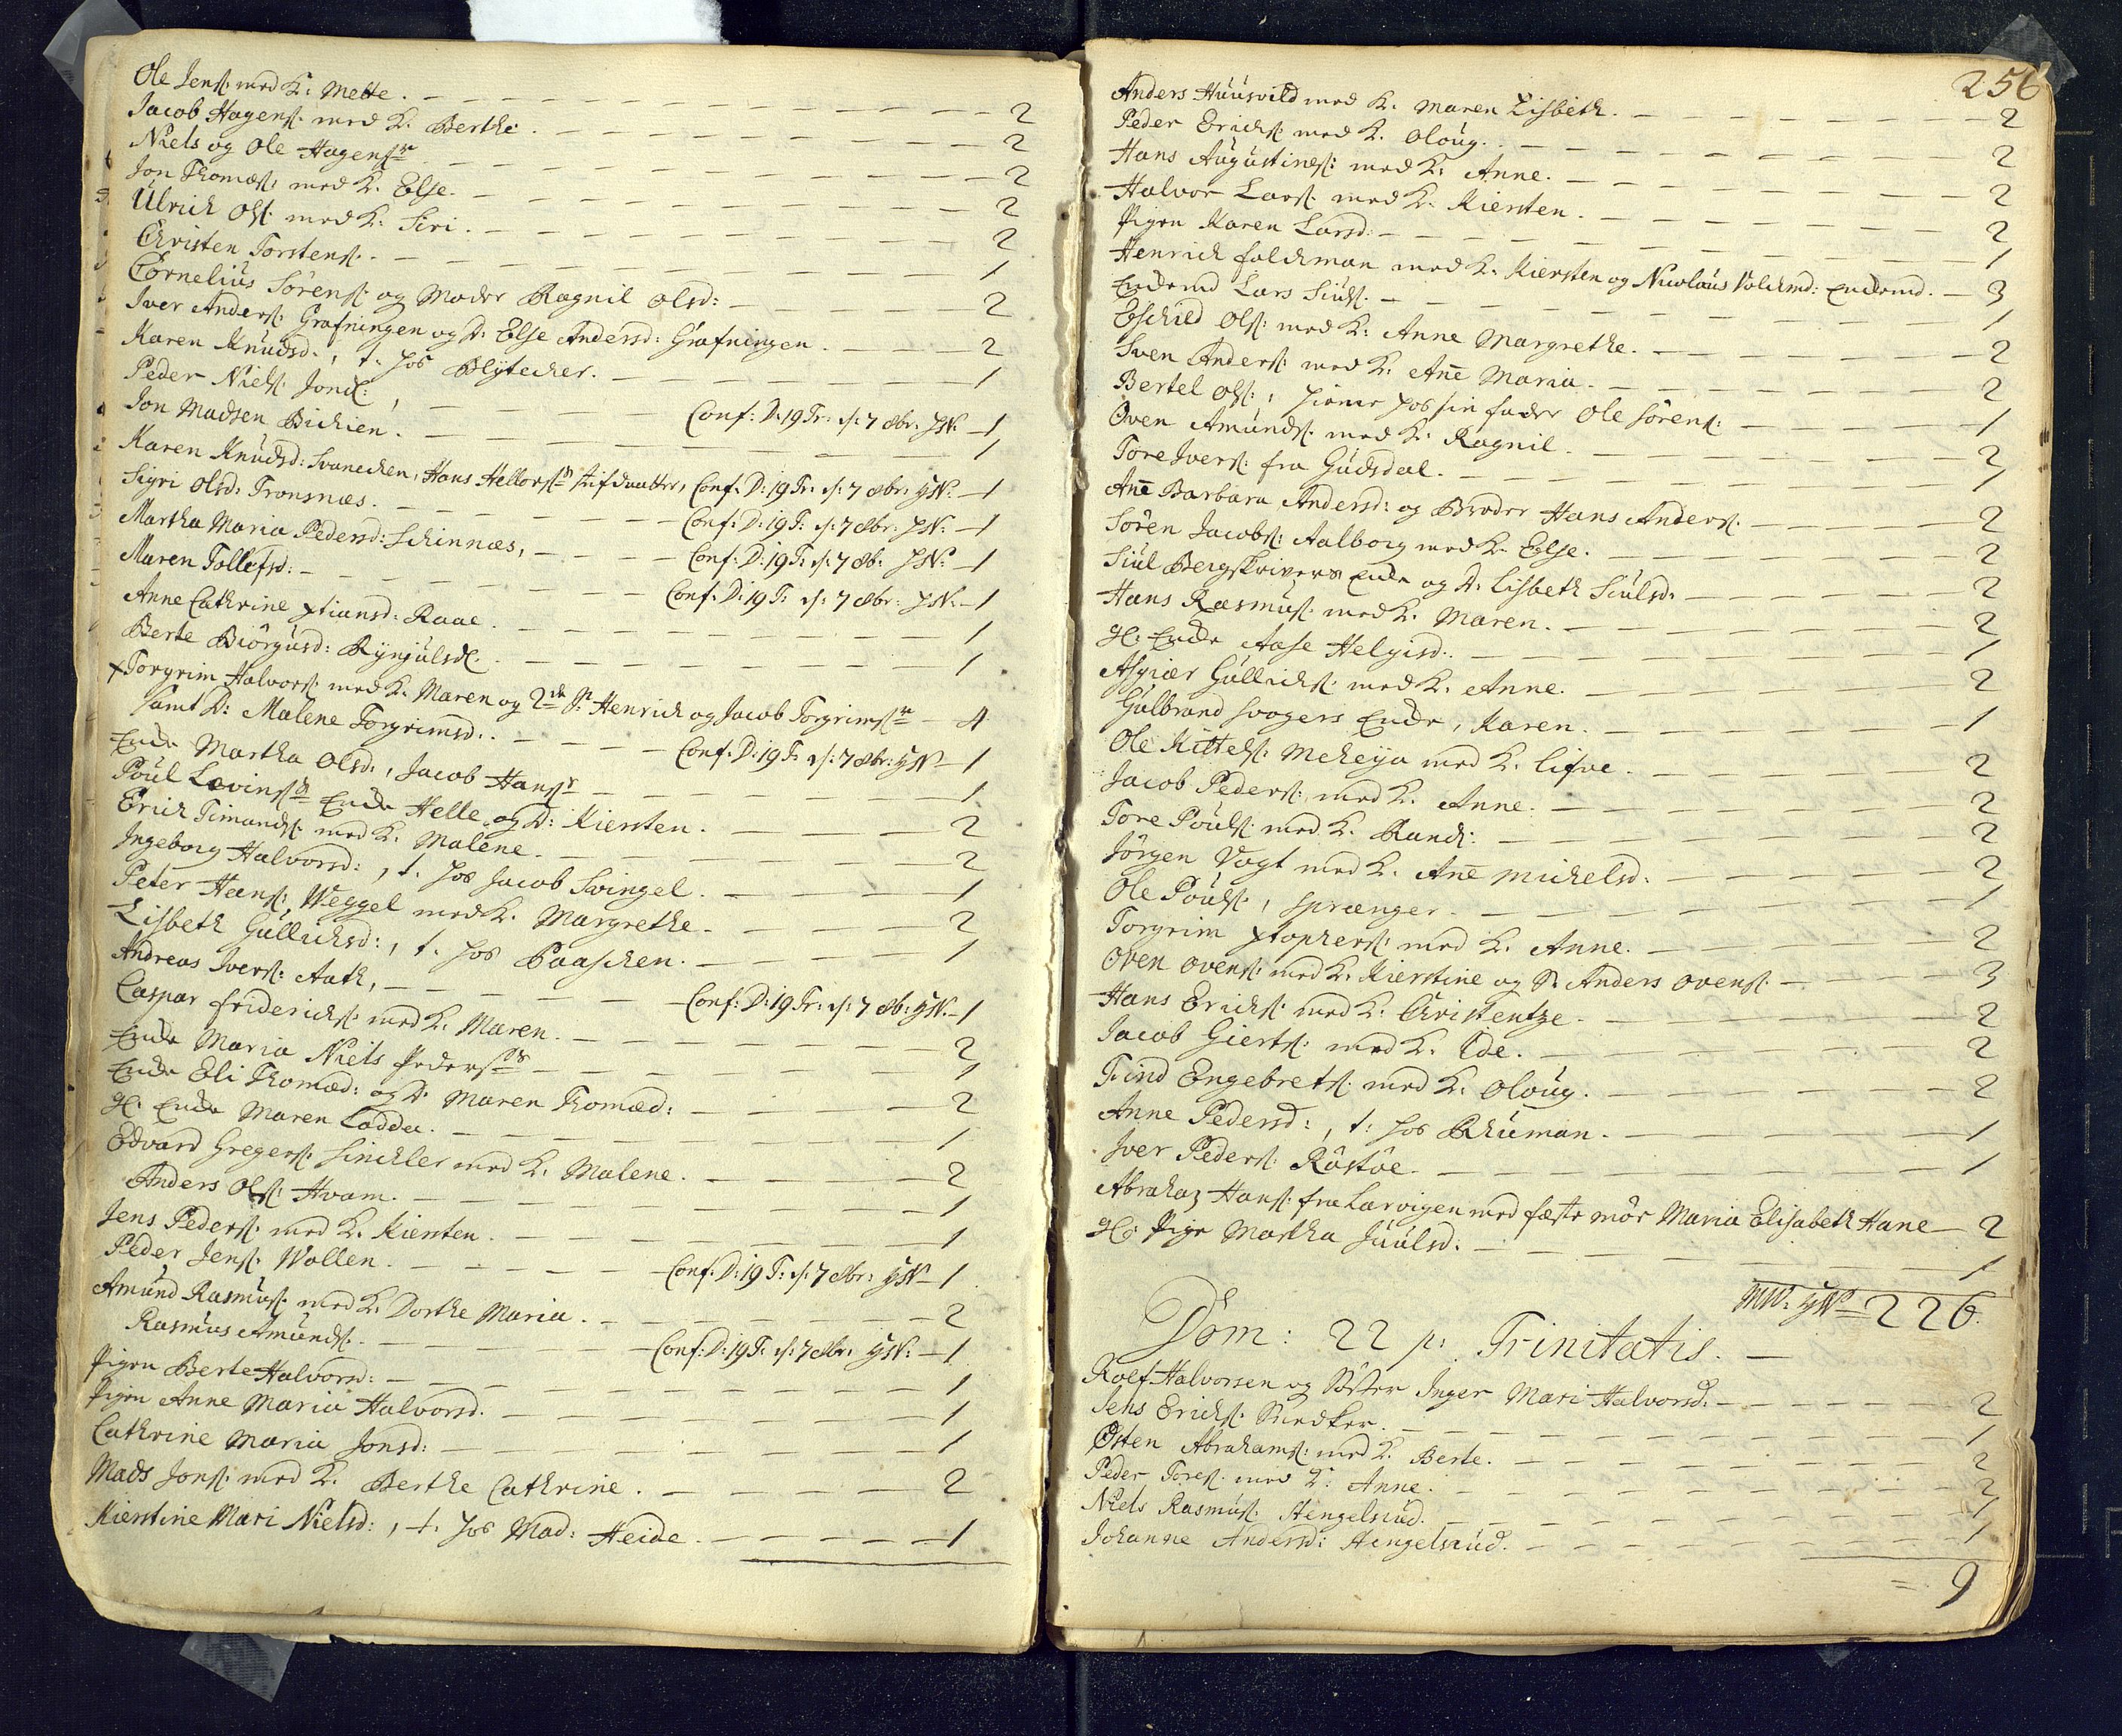 Ole Jens: med K: Mette. 2
Jacob Hagens: med K. Berthe. 2
Niels og Ole Hagens: 2
Jon Thomas: med K. Else. 2
Ulrich Ols: med K: Siri. 2
Christen Torstens: 1
Cornelius Sörens: og Moder Ragnil Olsd: 2
Iver Anders: Grafningen og D: Else Andersd: Grafningen. 2
Karen Knudsd:, t. hos Blytecher. 1
Peder Niels: Jond:, Conf: D: 19 Tr: s: 7 8br: 1
Jon Madsen Bichien. 1
Karen Knudsd: Svanechen, Hans Hellers: Stifdaatter, Conf: D: 19 Tr: s: 7 8br: 1
Sigri Olsd: Tronsnæs. Conf: D: 19 T: s: 7 8br: 1
Martha Maria Pedersd: Schinnæs, Conf: D: 19 T: s: 7 8b: 1
Maren Tollefsd: Conf: D: 19 T: s: 7 8br: 1
Anne Cathrine Xtiansd: Raae. 1
Berte Biörgusd: Rynjulsd. 1
+Torgrim Halvors: med K. Maren og 2de S: Henrich og Jacob Torgrims: 4
samt D: Malene Torgrimsd. Conf: D: 19 Tr: s: 7 8br: 1
Encke Martha Olsd:, Jacob Hans: 1
Poul Lævins: Encke Helle og D: Kiersten. 2
Erich Timands: med K. Malene. 2
Ingeborg Halvorsd:, t. hos Jacob Svingel. 1
Peter Hans: Weggel med K. Margrethe. 2
Lisbeth Gullichsd:, t. hos Paaschen. 1
Andreas Ivers: Aath, Conf: D: 19 Tr: s: 7 8b: 1
Caspar Friderichs: med K. Maren. 2
Encke Maria Niels Peders: 1
Encke Eli Thomæd: og D. Maren Thomæd: 2
gl: Encke Maren Ladda. 1
Edvard Gregers: Sinchler med K. Malene. 2
Anders Ols: Hvam. 1
Jens Peders: med K. Kiersten. 1
Peder Jens: Wollen. Conf: D: 19 T: s: 7 8br: 1
Amund Rasmus: med K. Dorthe Maria. 2
Rasmus Amunds: Conf: D: 19 T: s: 7 8br: 1
Pigen Berte Halvorsd: 1
Pigen Anne Maria Halvorsd. 1
Cathrine Maria Jonsd: 1
Mads Jons: med K. Berthe Cathrine. 2
Kierstine Mari Nielsd:, t. hos Mad: Heide. 1
256
Anders Huusvild med K. Maren Lisbeth. 2
Peder Erichs: med K. Oloug. 2
Hans Augustins: med K: Anne. 2
Halvor Lars: med K. Kiersten. 2
Pigen Karen Larsd: 1
Henrich Folchman med K. Kiersten og Nicolaus Volchmd: Enckemd. 3
Enckemd Lars Siuls: 1
Eschild Ols: med K: Anne Margrethe. 2
Sven Anders: med K. Añe Maria. 2
Bertel Ols:, hiemme hos sin fader Ole Sörens: 1
Oven Amunds: med K: Ragnil. 2
Tore Ivers: fra Gudsdal. 1
Añe Barbara Andersd: og Broder Hans Anders: 2
Sören Jacobs: Aalborg med K. Eglse. 2
Siul Bergskrivers Encke og D. Lisbeth Siulsd. 2
Hans Rasmus: med K. Maren. 2
gl: Encke Aase Helgisd. 1
Asgier Gullichs: med K. Anne. 2
Gulbrand Svogers Encke, Karen. 1
Ole Kittels: Meheya med K. Lisve. 2
Jacob Peders: med K. Anne. 2
Tore Pouls: med K. Randi: 2
Jörgen Vogt med K. Añe Michelsd: 2
Ole Pouls:, Sprænger. 1
Torgrim Xtophers: med K. Anne. 2
Oven Ovens: med K. Kierstine og S. Anders Ovens: 3
Hans Erichs: med K. Christentze. 2
Jacob Gierts: med K. Ide. 2
Find Engebrets: med K. Oloug. 2
Anne Pedersd:, t: hos Rhuman. 1
Iver Peders: Röstöe. 1
Abraham Hans: fra Larvigen med fæste mör Maria Elisabeth Hane 2
gl: Pige Martha Juulsd: 1
226.
Dom: 22 p: Trinitatis.
Roef Halvorsen og Söster Inger Mari Halvorsd: 2
Jens Erichs: Snedker. 1
Østen Abrahams: med K. Berte. 2
Peder Tores: med K. Anne. 2
Niels Rasmus: Hengelsrud. 1
Johanne Andersd: Hengelsrud. 1
= 9